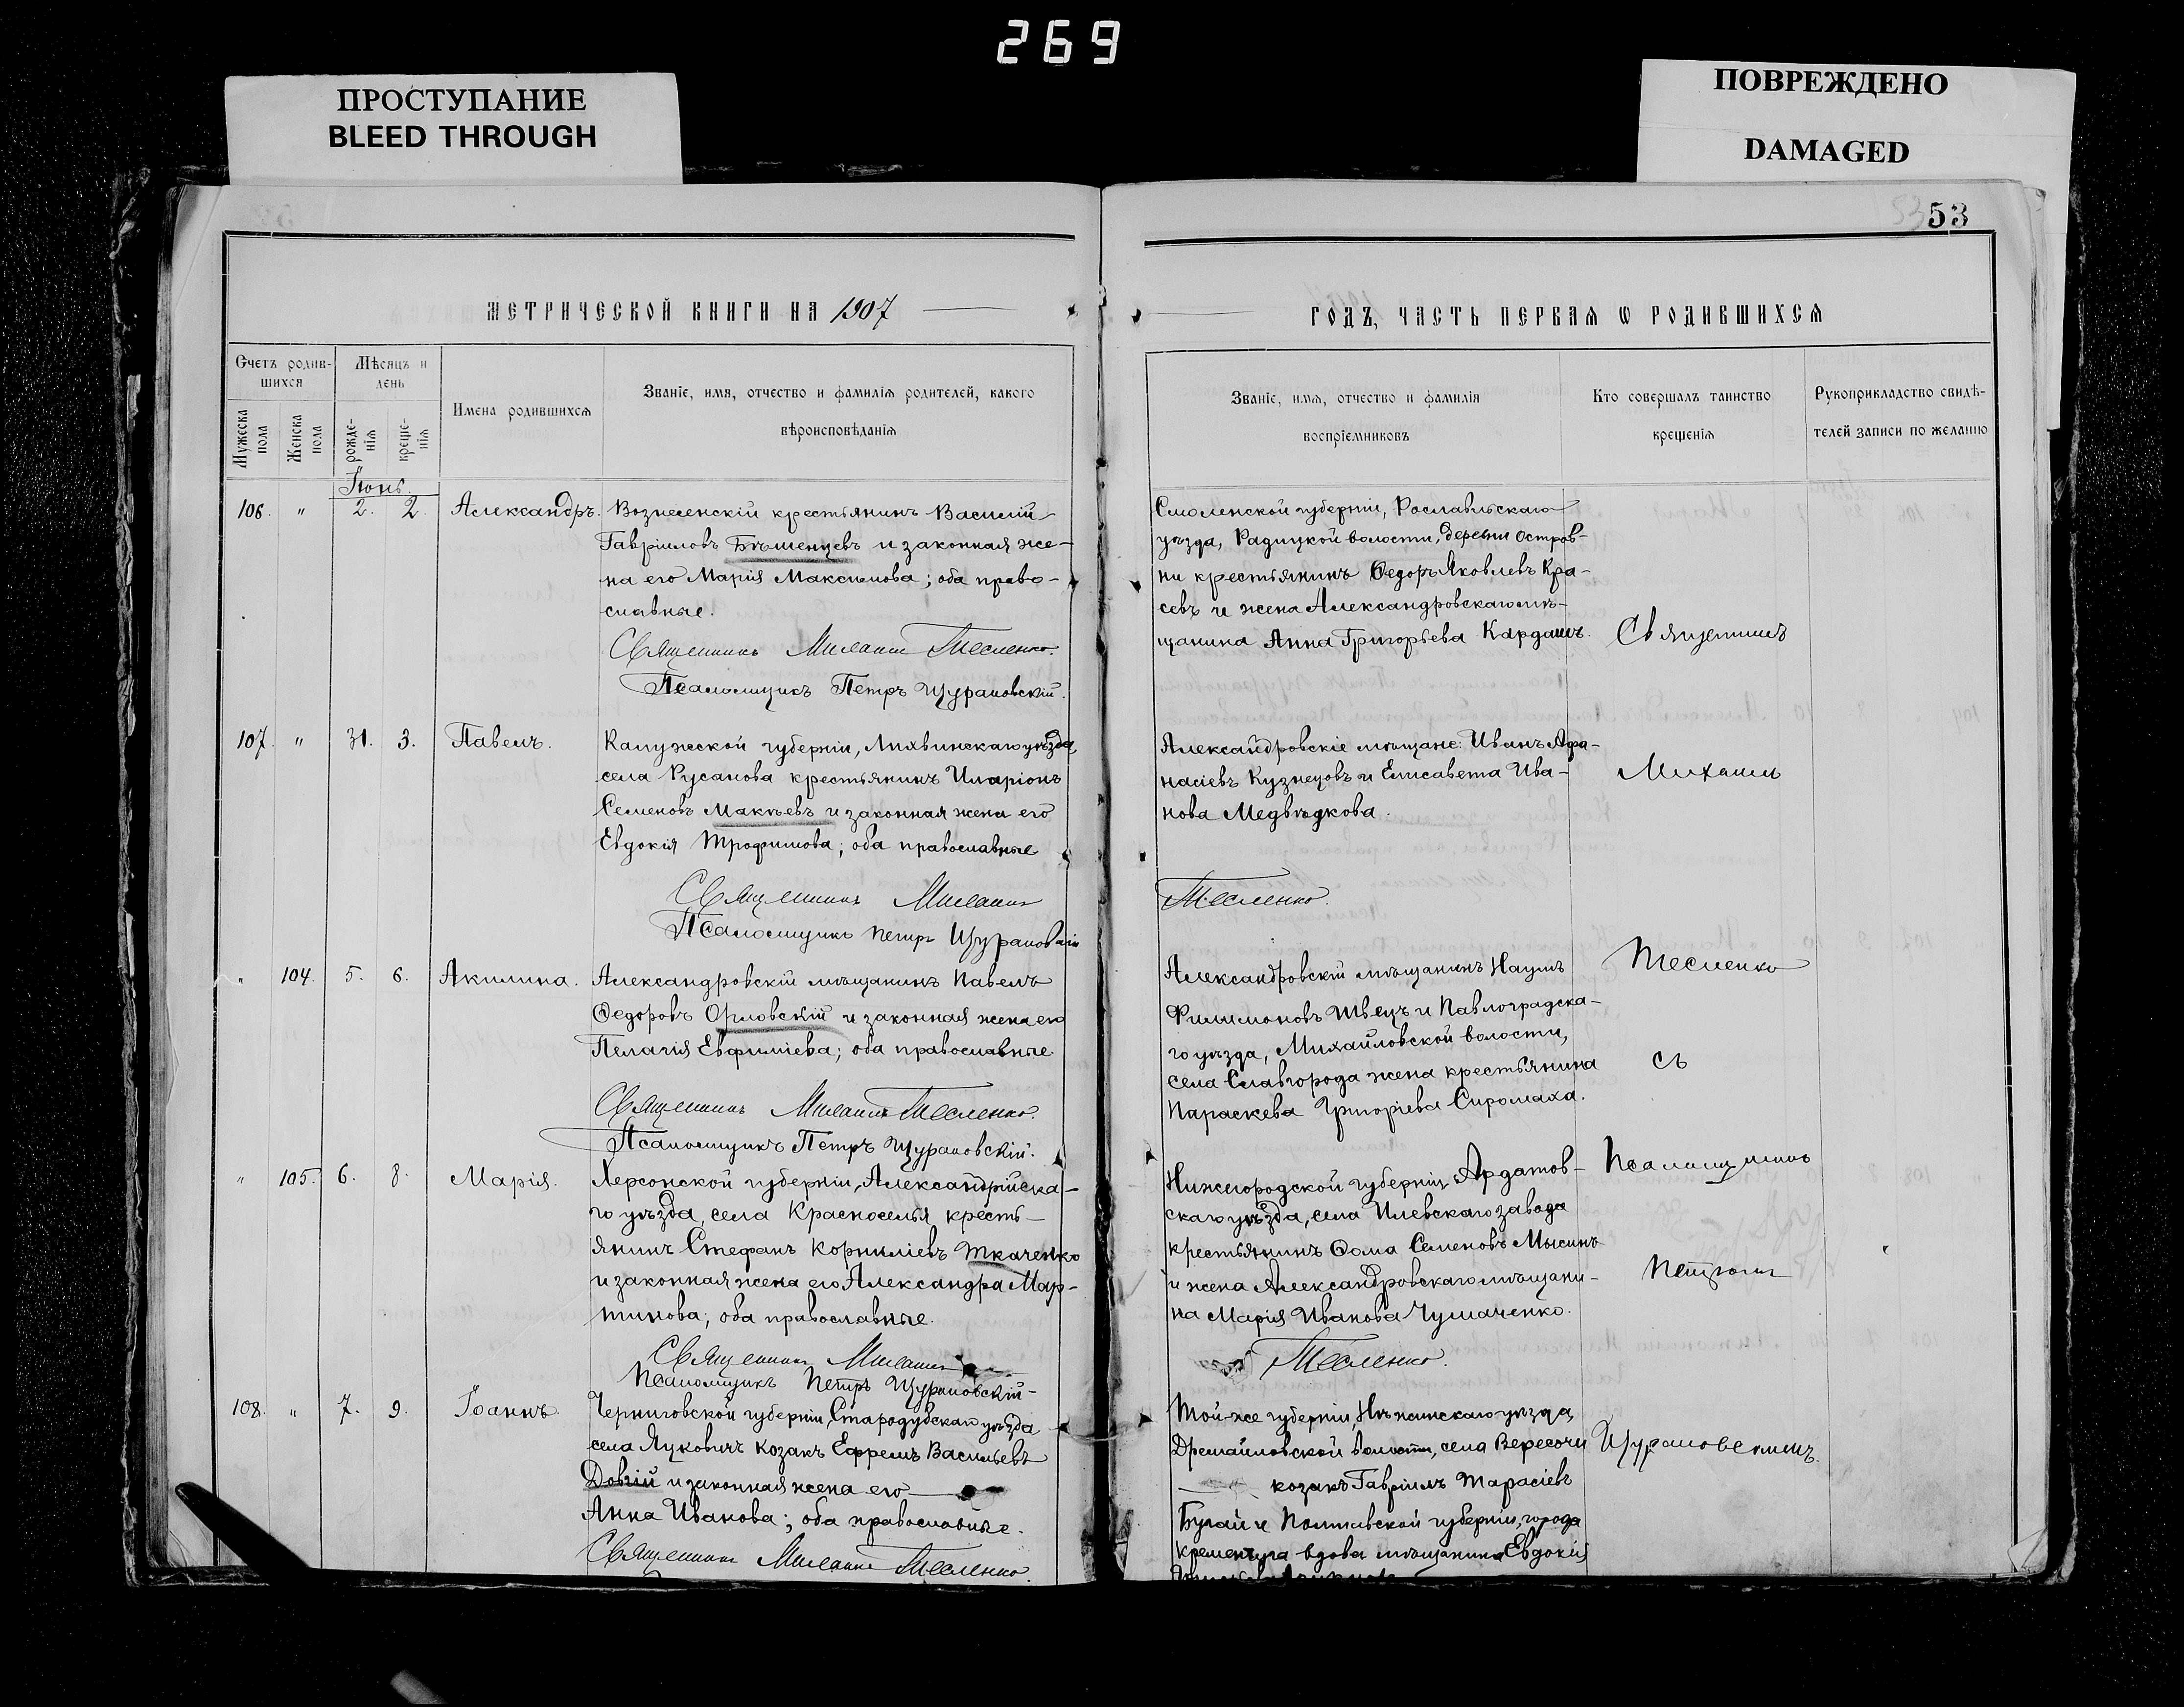 269
ПРОСТУПАНИЕ
BLEED THROUGH
ПОВРЕЖДЕНО
DAMAGED
53
МЕТРИЧЕСКОЙ КНИГИ НА 1907
Счетъ родив-
шихся
Мѣсяцъ и
день
Мужеска
пола
Женска
пола
рожде-
нія
креще-
нія
Имена родившихся
Званіе, имя, отчество и фамилія родителей, какого
вѣроисповѣданія
Іюнь.
106. " 2. 2. Александръ. Вознесенскій крестьянинъ Василій
Гавріиловъ Бѣшенцевъ и законная же-
на его Марія Максимова; оба право-
славные.
Священникъ Михаилъ Тесленко.
Псаломщикъ Петръ Щурановскій.
107. " 31. 3. Павелъ. Калужской губерніи, Лихвинскаго уѣзда,
села Русанова крестьянинъ Иларіонъ
Семеновъ Макѣевъ и законная жена его
Евдокія Трофимова; оба православные
Священникъ Михаилъ
Псаломщикъ Петръ Щурановскій
" 104. 5. 6. Акилина. Александровскій мѣщанинъ Павелъ
Ѳедоровъ Орловскій и законная жена его
Пелагія Евфиміева; оба православные
Священникъ Михаилъ Тесленко.
Псаломщикъ Петръ Щурановскій.
" 105. 6. 8. Марія. Херсонской губерніи, Александрійска-
го уѣзда, села Красноселья кресть-
янинъ Стефанъ Корниліевъ Ткаченко
и законная жена его Александра Мар-
тинова; оба православные.
Священникъ Михаилъ
Псаломщикъ Петръ Щурановскій
108. " 7. 9. Іоаннъ. Черниговской губерніи, Стародубскаго уѣзда
села Луковичъ козакъ Ефремъ Васильевъ
Довгій и законная жена его
Анна Иванова; оба православные.
Священникъ Михаилъ Тесленко.
ГОДЪ, ЧАСТЬ ПЕРВАЯ Ѡ РОДИВШИХСЯ
Званіе, имя, отчество и фамилія
воспріемниковъ
Кто совершалъ таинство
крещенія
Рукоприкладство свидѣ-
телей записи по желанію
Смоленской губерніи, Рославльскаго
уѣзда, Радицкой волости, деревни Остров-
ни крестьянинъ Ѳедоръ Яковлевъ Кра-
севъ и жена Александровскаго мѣ-
щанина Анна Григорьева Кардашъ.
Священникъ
Александровскіе мѣщане: Иванъ Афа-
насіевъ Кузнецовъ и Елисавета Ива-
нова Медвѣдкова.
Михаилъ
Тесленко.
Александровскій мѣщанинъ Наумъ
Филимоновъ Швецъ и Павлоградска-
го уѣзда, Михайловской волости,
села Славгорода жена крестьянина
Параскева Григоріева Сиромаха.
Тесленко
съ
Нижегородской губерніи Ардатов-
скаго уѣзда, села Илевскаго завода
крестьянинъ Ѳома Семеновъ Мысинъ
и жена Александровскаго мѣщани-
на Марія Иванова Чумаченко.
Псаломщикомъ
Петромъ
Тесленко.
Той-же губерніи, Нѣжинскаго уѣзда,
Дремайловской волости, села Вересочи
козакъ Гавріилъ Тарасіевъ
Бугай и Полтавской губерніи, города
Кременчуга вдова мѣщанина Евдокія
Щурановскимъ.